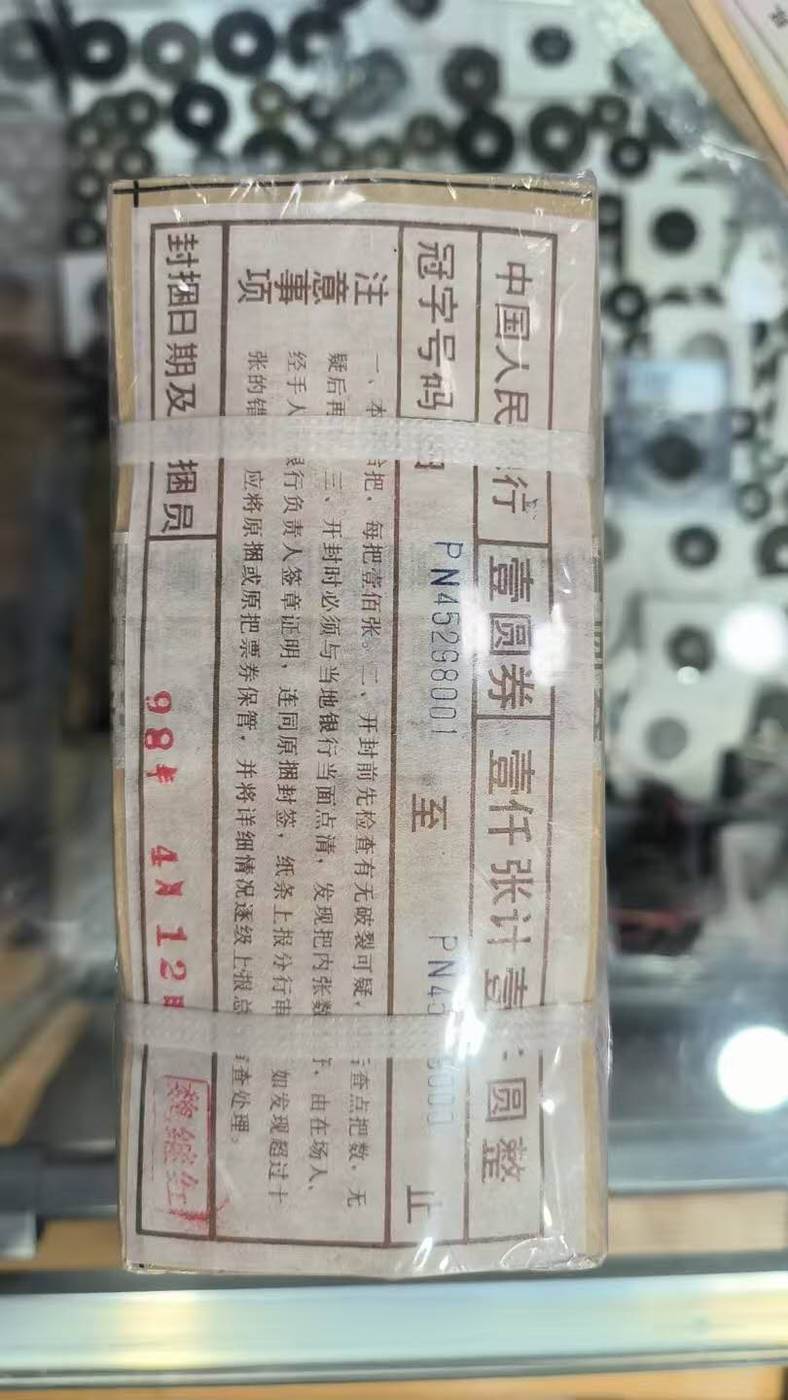 中国人民 行 壹圆券 壹仟张计壹 圆整
冠字号码 PN45298001 至 止
注意事项
一、本 把,每把壹佰张。二、开封前先检查有无破裂可疑, 查点把数,无
疑后再 三、开封时必须与当地银行当面点清,发现把内张数 由在场人、
经手人 银行负责人签章证明,连同原捆封签,纸条上报分行审 如发现超过十
张的错 应将原捆或原把票券保管,并将详细情况逐级上报总 查处理。
封捆日期及 捆员 98年 4月 12日